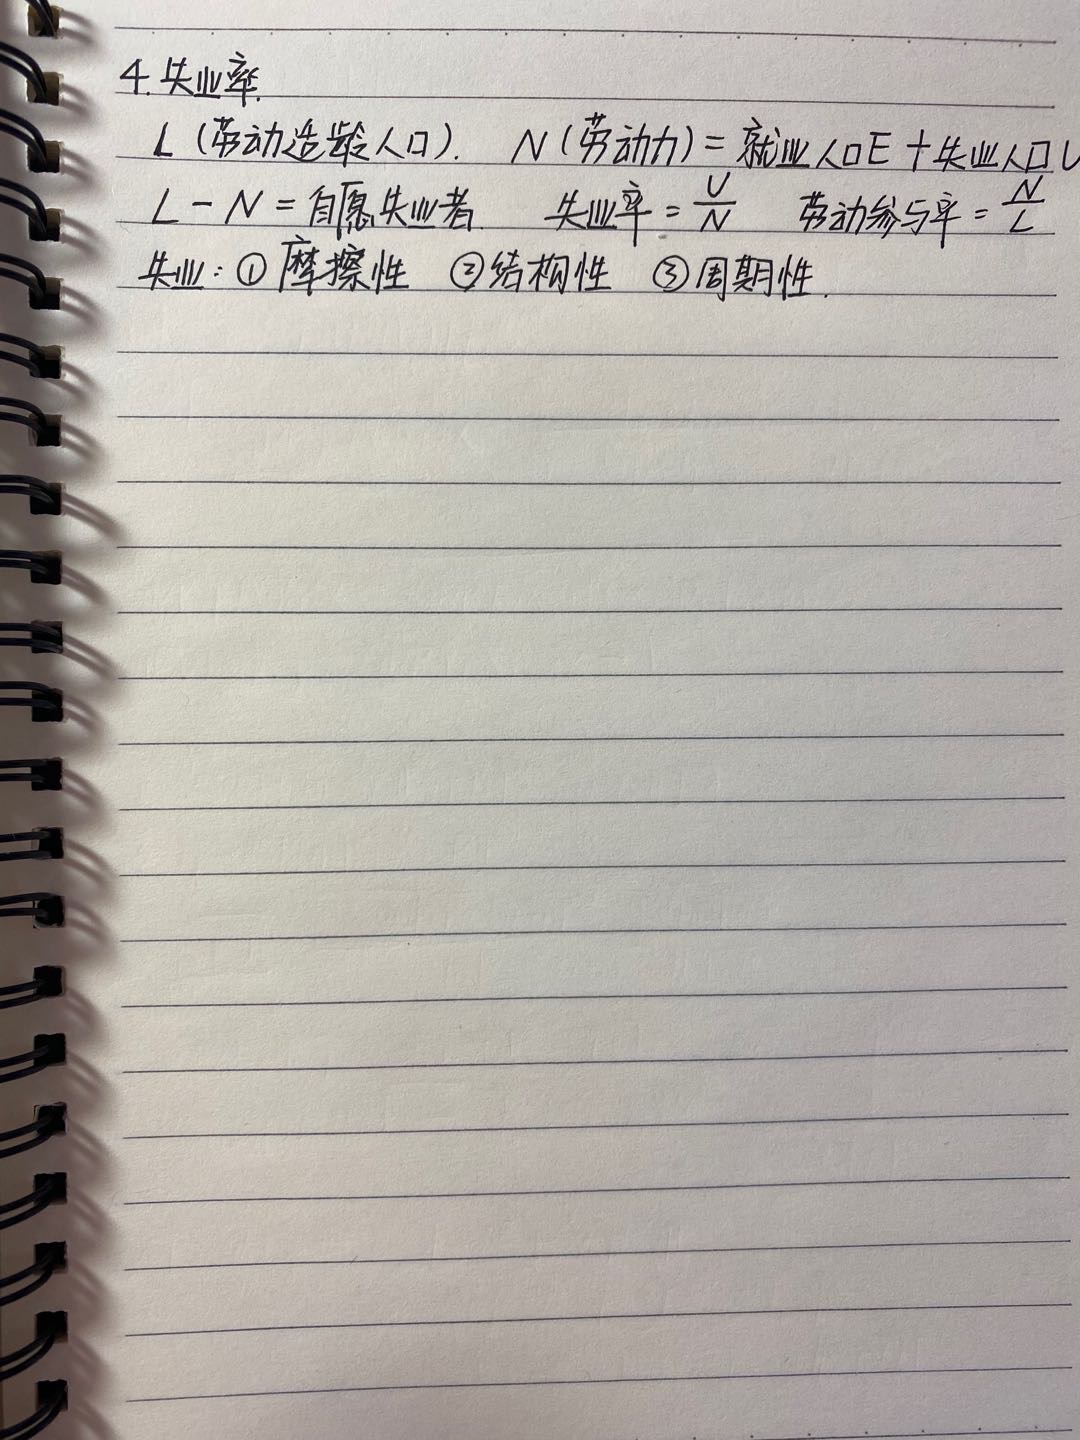 4. 失业率.
L (劳动适龄人口). N (劳动力) = 就业人口E + 失业人口U
L - N = 自愿失业者. 失业率 = U/N 劳动参与率 = N/L
失业: ① 摩擦性 ② 结构性 ③ 周期性.